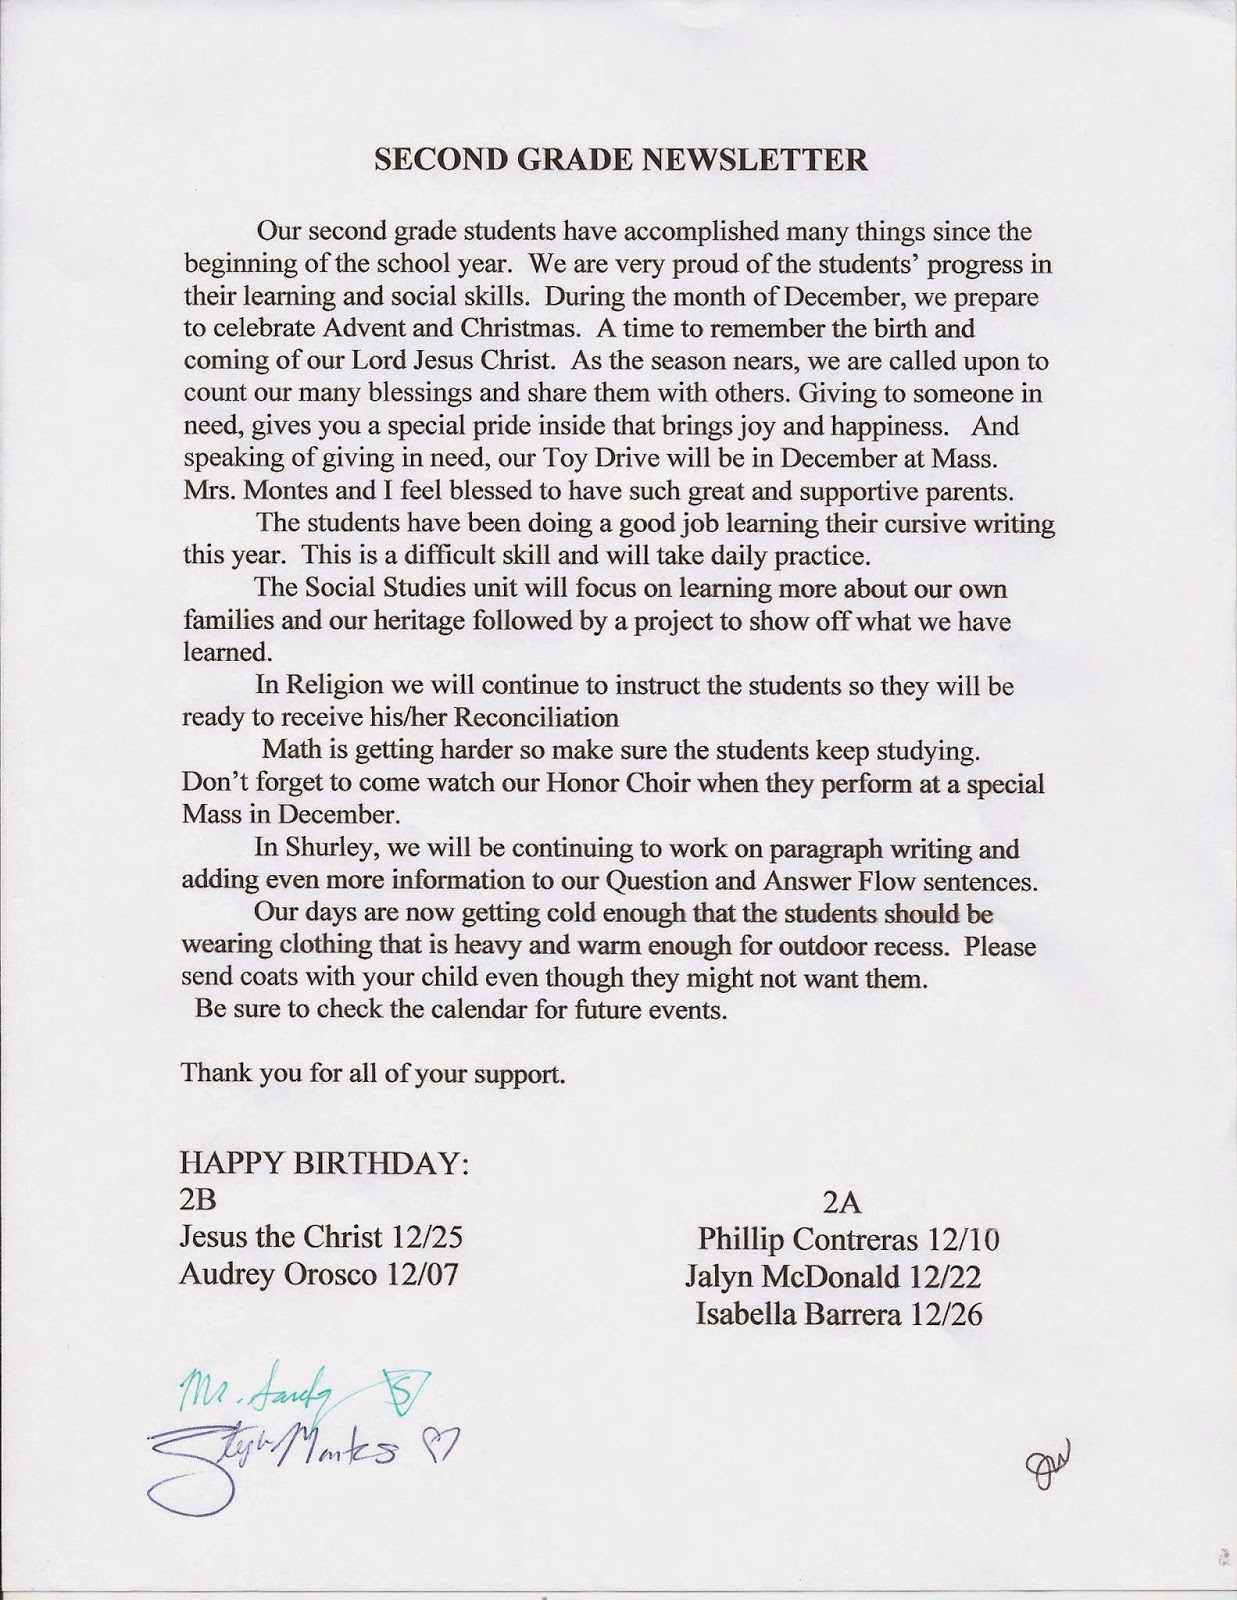 SECOND GRADE NEWSLETTER
Our second grade students have accomplished many things since the
beginning of the school year. We are very proud of the students' progress in
their learning and social skills. During the month of December, we prepare
to celebrate Advent and Christmas. A time to remember the birth and
coming of our Lord Jesus Christ. As the season nears, we are called upon to
count our many blessings and share them with others. Giving to someone in
need, gives you a special pride inside that brings joy and happiness. And
speaking of giving in need, our Toy Drive will be in December at Mass.
Mrs. Montes and I feel blessed to have such great and supportive parents.
The students have been doing a good job learning their cursive writing
this year. This is a difficult skill and will take daily practice.
The Social Studies unit will focus on learning more about our own
families and our heritage followed by a project to show off what we have
learned.
In Religion we will continue to instruct the students so they will be
ready to receive his/her Reconciliation
Math is getting harder so make sure the students keep studying.
Don't forget to come watch our Honor Choir when they perform at a special
Mass in December.
In Shurley, we will be continuing to work on paragraph writing and
adding even more information to our Question and Answer Flow sentences.
Our days are now getting cold enough that the students should be
wearing clothing that is heavy and warm enough for outdoor recess. Please
send coats with your child even though they might not want them.
Be sure to check the calendar for future events.
Thank you for all of your support.
HAPPY BIRTHDAY:
2B
Jesus the Christ 12/25
Audrey Orosco 12/07
2A
Phillip Contreras 12/10
Jalyn McDonald 12/22
Isabella Barrera 12/26
Mr.
S
JW